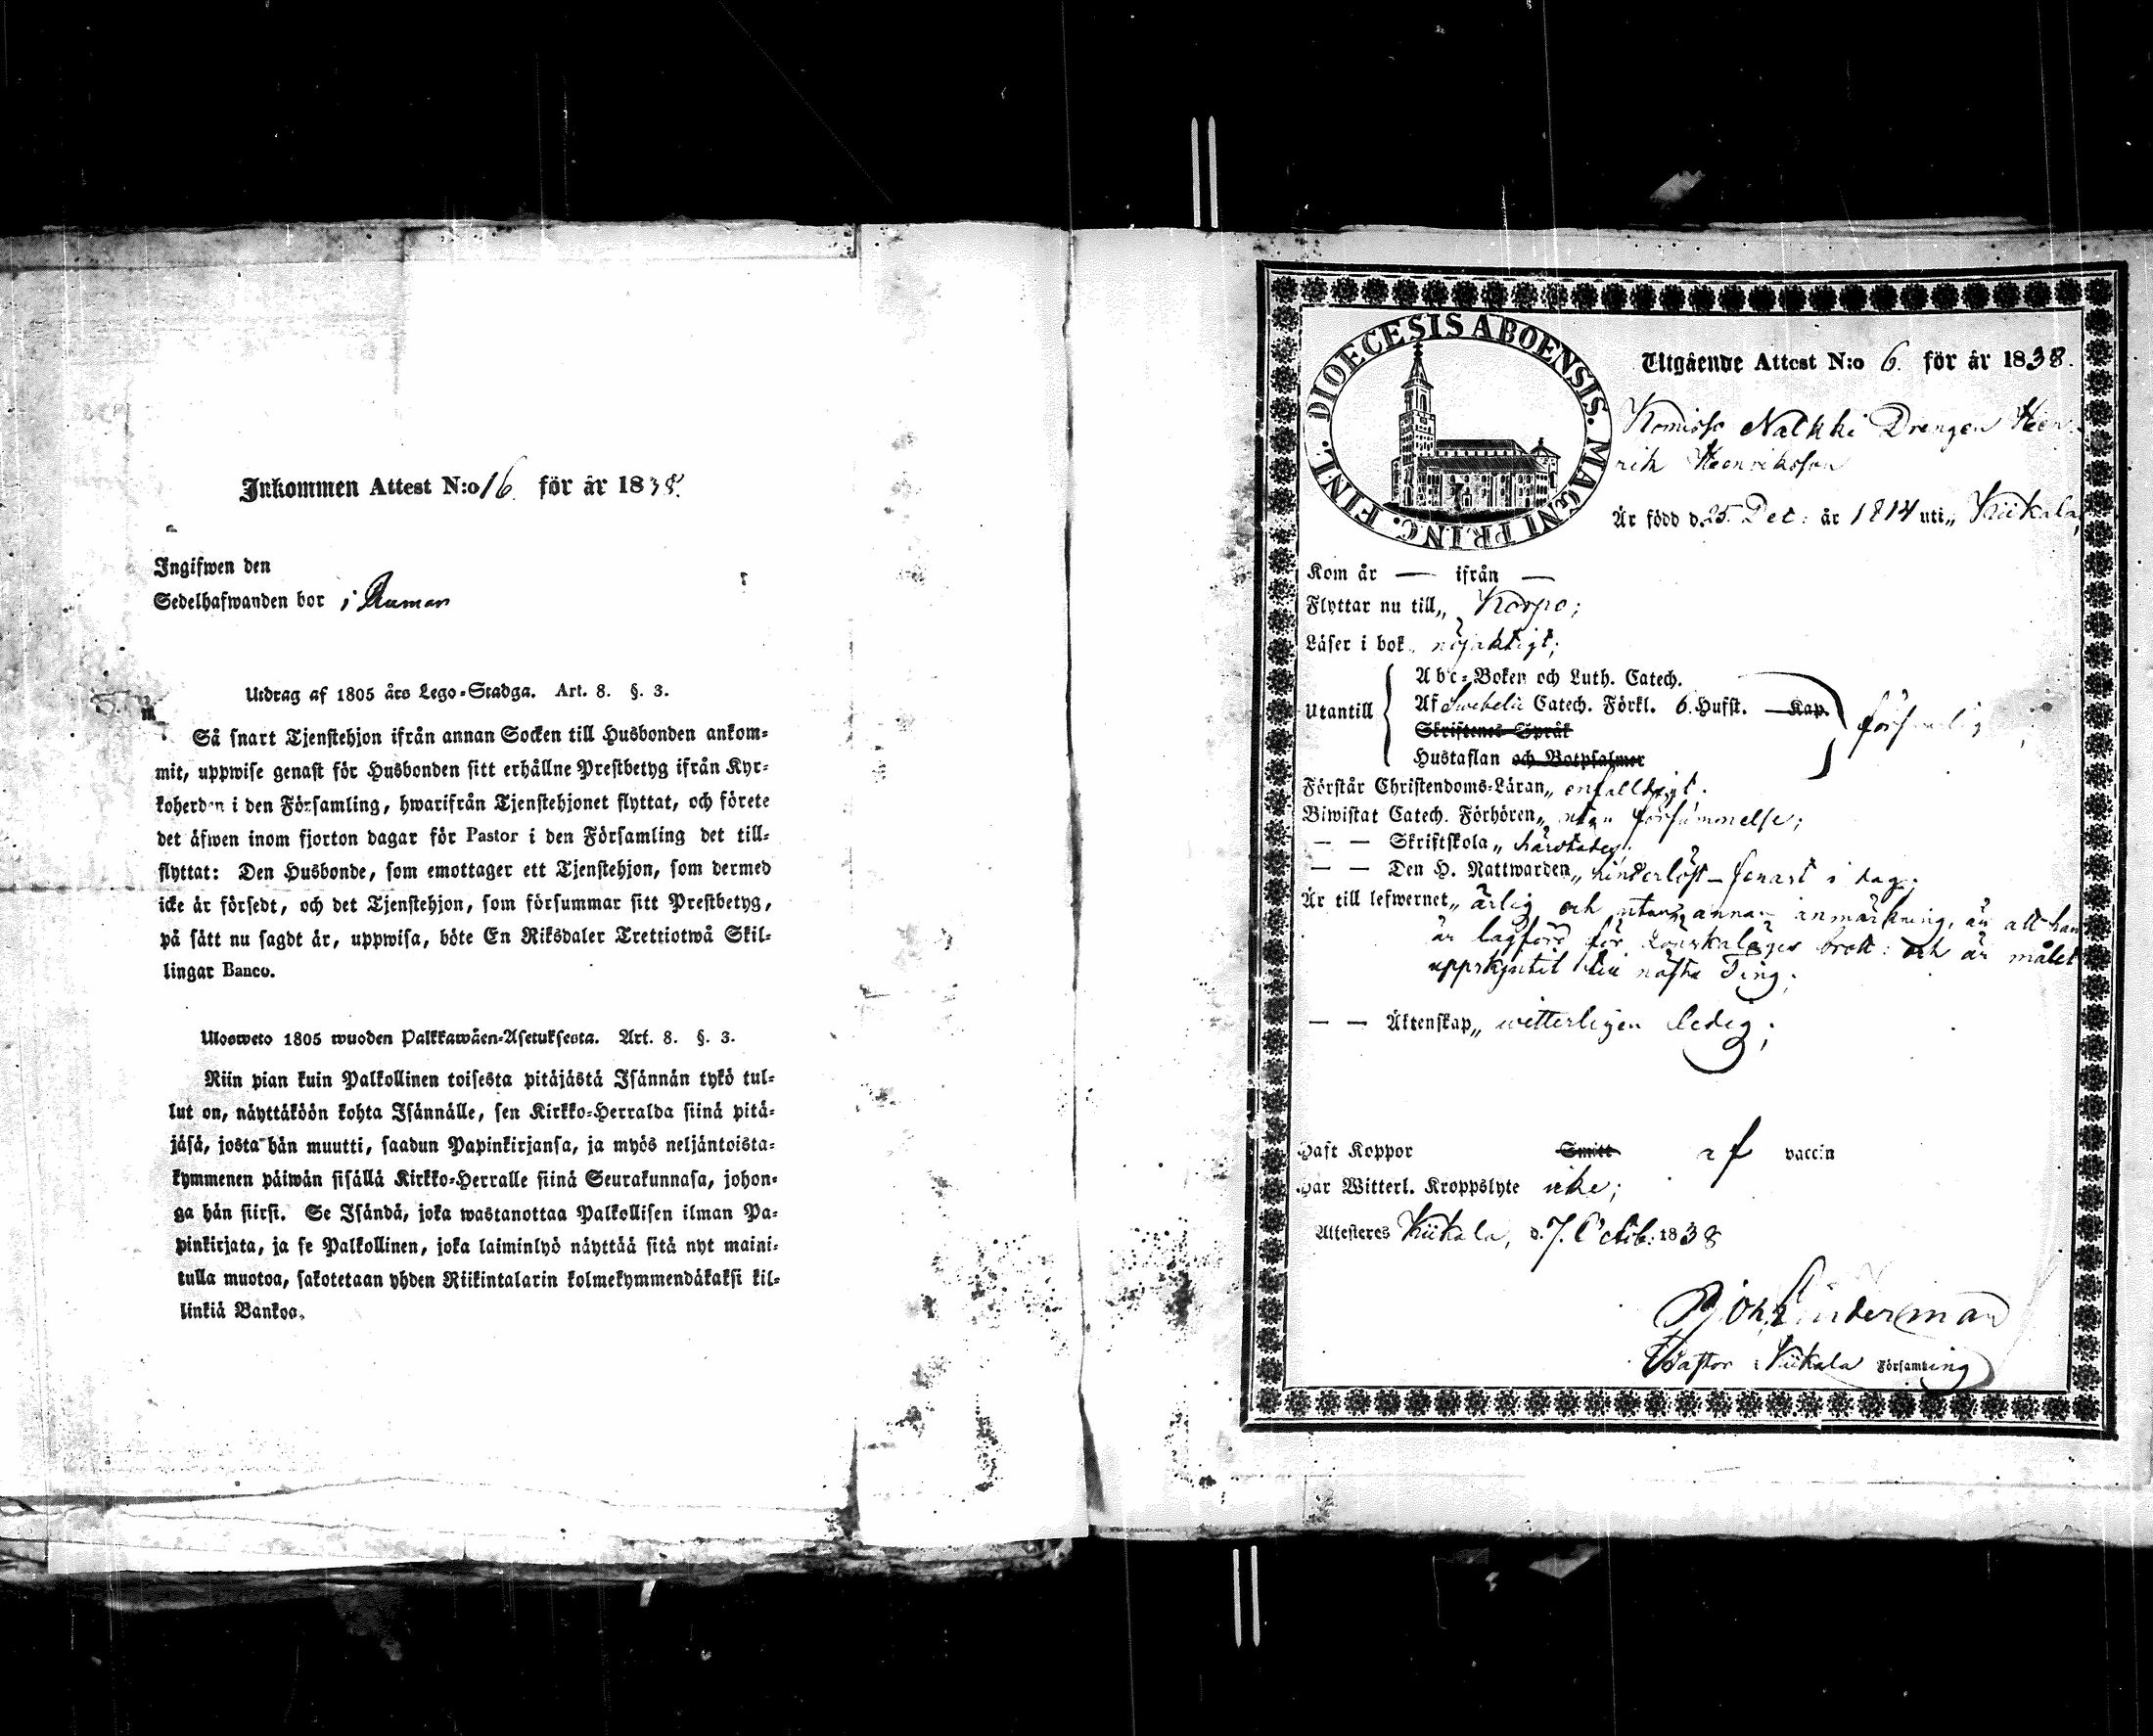 Inkommen Attest N:o 16. för år 1838.
Ingifwen den
Sedelhafwanden bor i Rumar
Utdrag af 1805 års Lego-Stadga. Art. 8. §. 3.
Så snart Tjenstehjon ifrån annan Socken till Husbonden ankom-
mit, uppwise genast för Husbonden sitt erhållne Prestbetyg ifrån Kyr-
koherden i den Församling, hwarifrån Tjenstehjonet flyttat, och förete
det äfwen inom fjorton dagar för Pastor i den Församling det till-
flyttat: Den Husbonde, som emottager ett Tjenstehjon, som dermed
icke är försedt, och det Tjenstehjon, som försummar sitt Prestbetyg,
på sätt nu sagdt är, uppwisa, böte En Riksdaler Trettiotwå Skil-
lingar Banco.
Ulosweto 1805 wuoden Palkkawäen-Asetuksesta. Art. 8. §. 3.
Niin pian kuin Palkollinen toisesta pitäjästä Isännän tykö tul-
lut on, näyttäköön kohta Isännälle, sen Kirkko-Herralda siinä pitä-
jäsä, josta hän muutti, saadun Papinkirjansa, ja myös neljäntoista-
kymmenen päiwän sisällä Kirkko-Herralle siinä Seurakunnasa, johon-
ga hän siirsi. Se Isändä, joka wastanottaa Palkollisen ilman Pa-
pinkirjata, ja se Palkollinen, joka laiminlyö näyttää sitä nyt maini-
tulla muotoa, sakotetaan yhden Riikintalarin kolmekymmendäkaksi kil-
linkiä Bankos.
DIOECESIS ABOENSIS. MAGNI PRINC. FINL.
Utgående Attest N:o 6. för år 1838.
Nalkki Drengen Hen-
rik Henriksson
Är född d. 25. Dec: år 1814 uti„ Kiikala,
Kom år — ifrån —
Flyttar nu till„ Korpo;
Läser i bok„ nöjaktigt;
Utantill
Abc-Boken och Luth. Catech.
Af Swebelii Catech. Förkl. 6. Hufst. — Kap.
Skriftenes Språk
Hustaflan och Botpsalmer
Förstår Christendoms-Läran„ enfalldigt.
Biwistat Catech. Förhören„ utan försummelse;
— — Skriftskola„
— — Den H. Nattwarden„ hinderlöst – senast i dag;
Är till lefwernet„ ärlig och utan annan anmärkning, än att han
är lagförd för brott: och är målet
uppskjutit till nästa Ting;
— — Äktenskap„ witterligen ledig;
Haft Koppor Smitt af vaccin
Har Witterl. Kroppslyte icke;
Attesteres Kiikala, d. 7. Octob: 1838
Pastor i Kiikala Församling